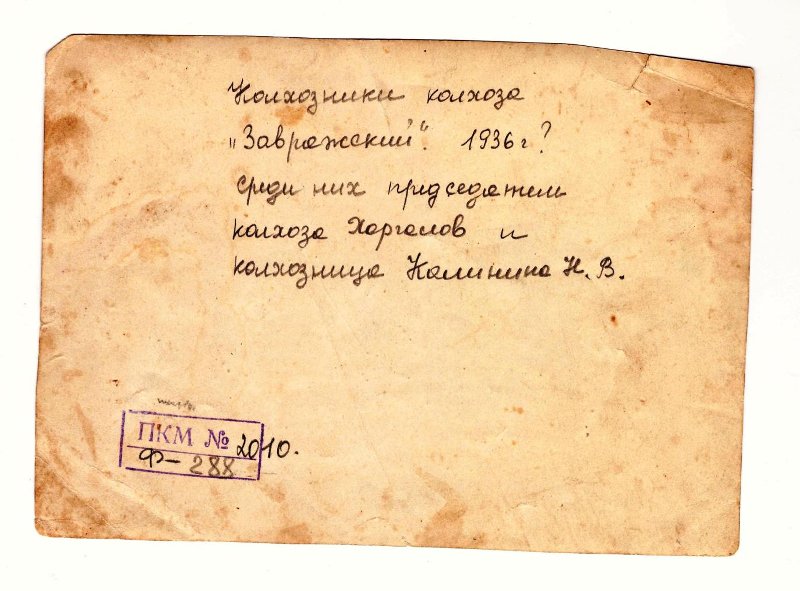 Колхозники колхоза
„Завражский“. 1936 г?
среди них председатели
колхоза Харгалов и
колхозница Калинина Н. В.
ПКМ № 2010.
Ф-288